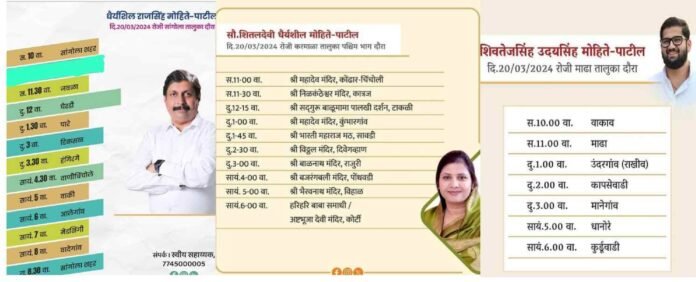 धैर्यशिल राजसिंह मोहिते-पाटील
दि.20/03/2024 रोजी सांगोला तालुका दौरा
स. 10 वा. सांगोला शहर
स. 11.30 वा. जवळा
दु. 12 वा. घेरडी
दु. 1.30 वा. पारे
दु. 3 वा. डिकसळ
दु. 3.30 वा. हंगिरगे
सायं. 4.30 वा. वाणीचिंचोले
सायं. 5 वा. वाकी
सायं. 6 वा. आलेगांव
सायं. 7 वा. मेडशिंगी
सायं. 8 वा. वाढेगांव
रा. 8.30 वा. सांगोला शहर
संपर्क : स्वीय सहाय्यक,
7745000005
सौ.शितलदेवी धैर्यशील मोहिते-पाटील
दि.20/03/2024 रोजी करमाळा तालुका पश्चिम भाग दौरा
स.11-00 वा. श्री महादेव मंदिर, कोंढार-चिंचोली
स.11-30 वा. श्री निळकंठेश्वर मंदिर, कात्रज
दु.12-15 वा. श्री सद्गुरू बाळूमामा पालखी दर्शन, टाकळी
दु.1-00 वा. श्री महादेव मंदिर, कुंभारगांव
दु.1-45 वा. श्री भारती महाराज मठ, सावडी
दु.2-30 वा. श्री विठ्ठल मंदिर, दिवेगव्हाण
दु.3-00 वा. श्री बाळनाथ मंदिर, राजुरी
सायं.4-00 वा. श्री बजरंगबली मंदिर, पोंधवडी
सायं. 5-00 वा. श्री भैरवनाथ मंदिर, विहाळ
सायं.6-00 वा. हरिहरि बाबा समाधी /
अष्टभूजा देवी मंदिर, कोर्टी
शिवतेजसिंह उदयसिंह मोहिते-पाटील
दि.20/03/2024 रोजी माढा तालुका दौरा
स.10.00 वा. वाकाव
स.11.00 वा. माढा
दु.1.00 वा. उंदरगांव (राखीव)
दु.2.00 वा. कापसेवाडी
दु.3.00 वा. मानेगांव
सायं.5.00 वा. धानोरे
सायं.6.00 वा. कुर्डूवाडी